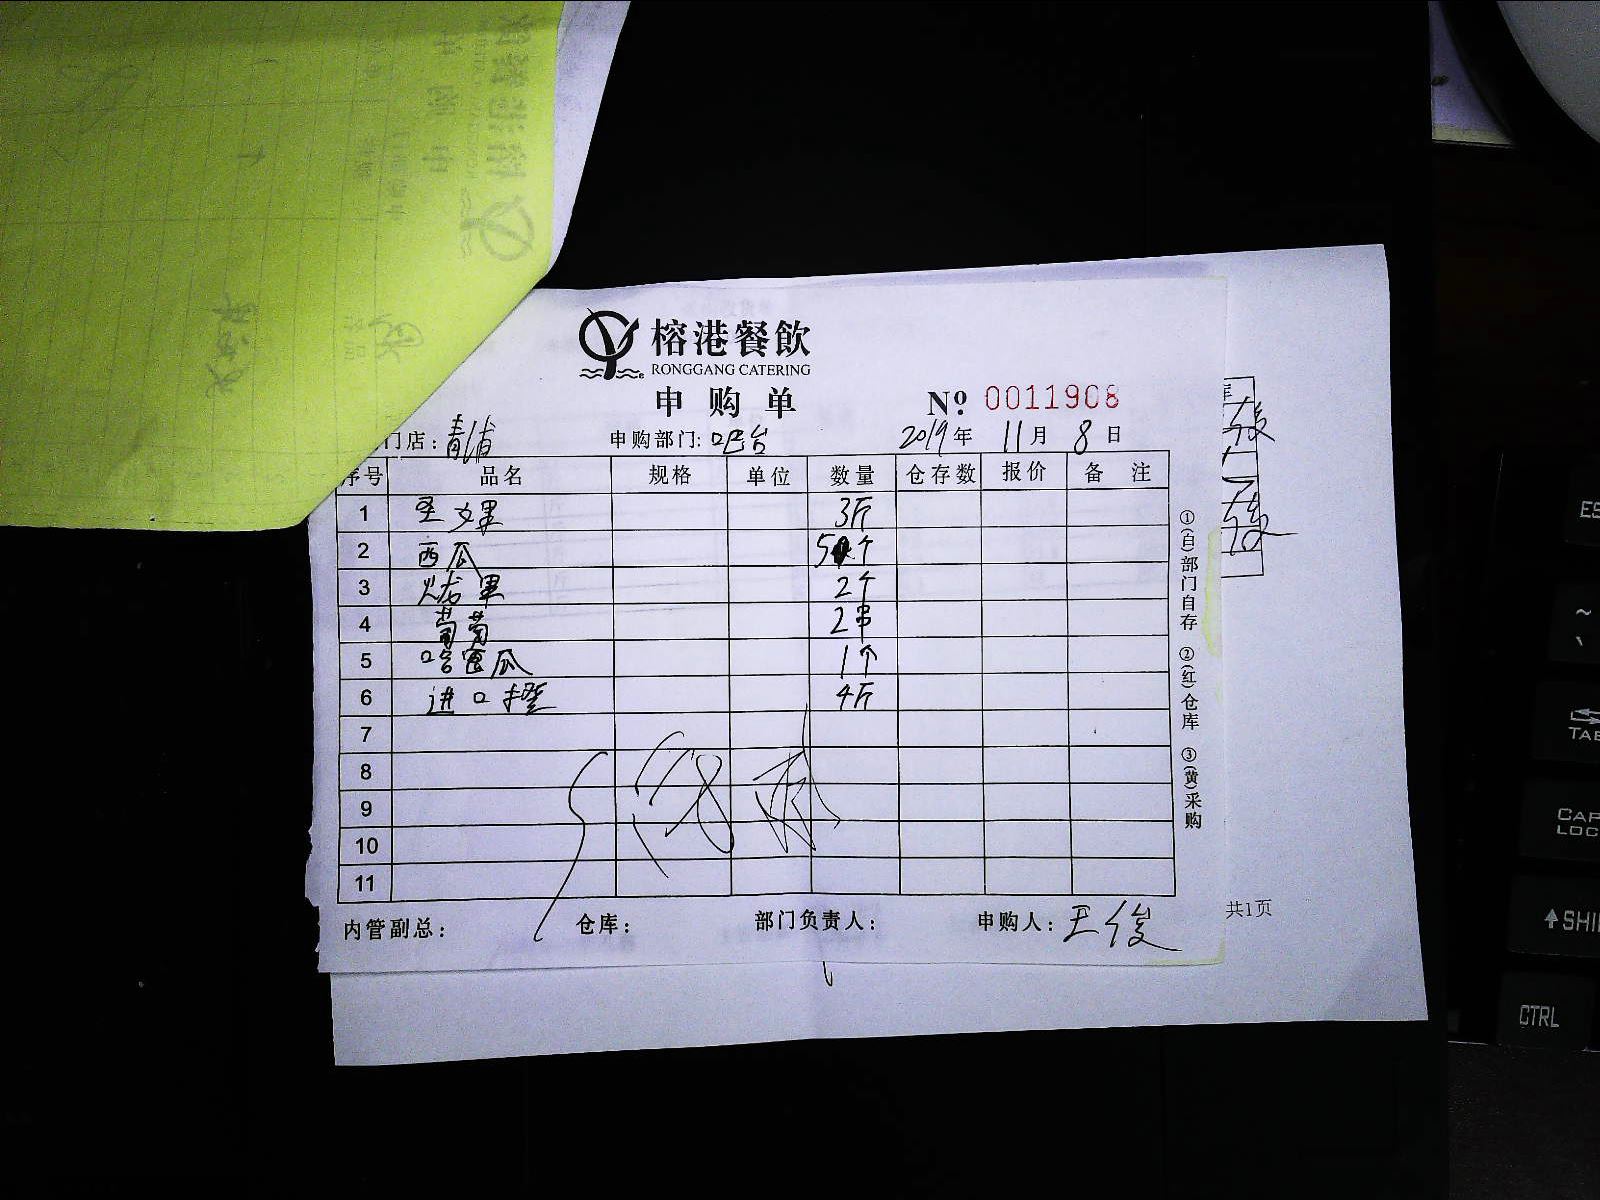 榕港餐飲
RONGGANG CATERING
申购单
№ 0011908
门店：青浦 申购部门:吧台 2019年 11月 8日
序号 品名 规格 单位 数量 仓存数 报价 备注
1 圣女果 3斤
2 西瓜 5个
3 火龙果 2个
4 葡萄 2串
5 哈密瓜 1个
6 进口橙 4斤
7
8
9
10
11
①(白)部门自存 ②(红)仓库 ③(黄)采购
内管副总： 仓库： 部门负责人： 申购人：王俊
共1页
ES
~
TAB
CAP
LOC
SHI
CTRL